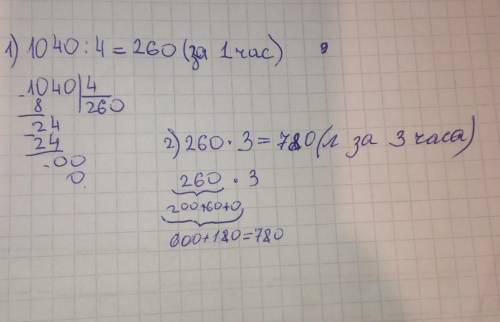 1) 1040 : 4 = 260 (за 1 час)
- 1040 | 4
8 | 260
- 24
24
- 00
0
2) 260 · 3 = 780 (л за 3 часа)
260 · 3
200+60+0
600+180=780